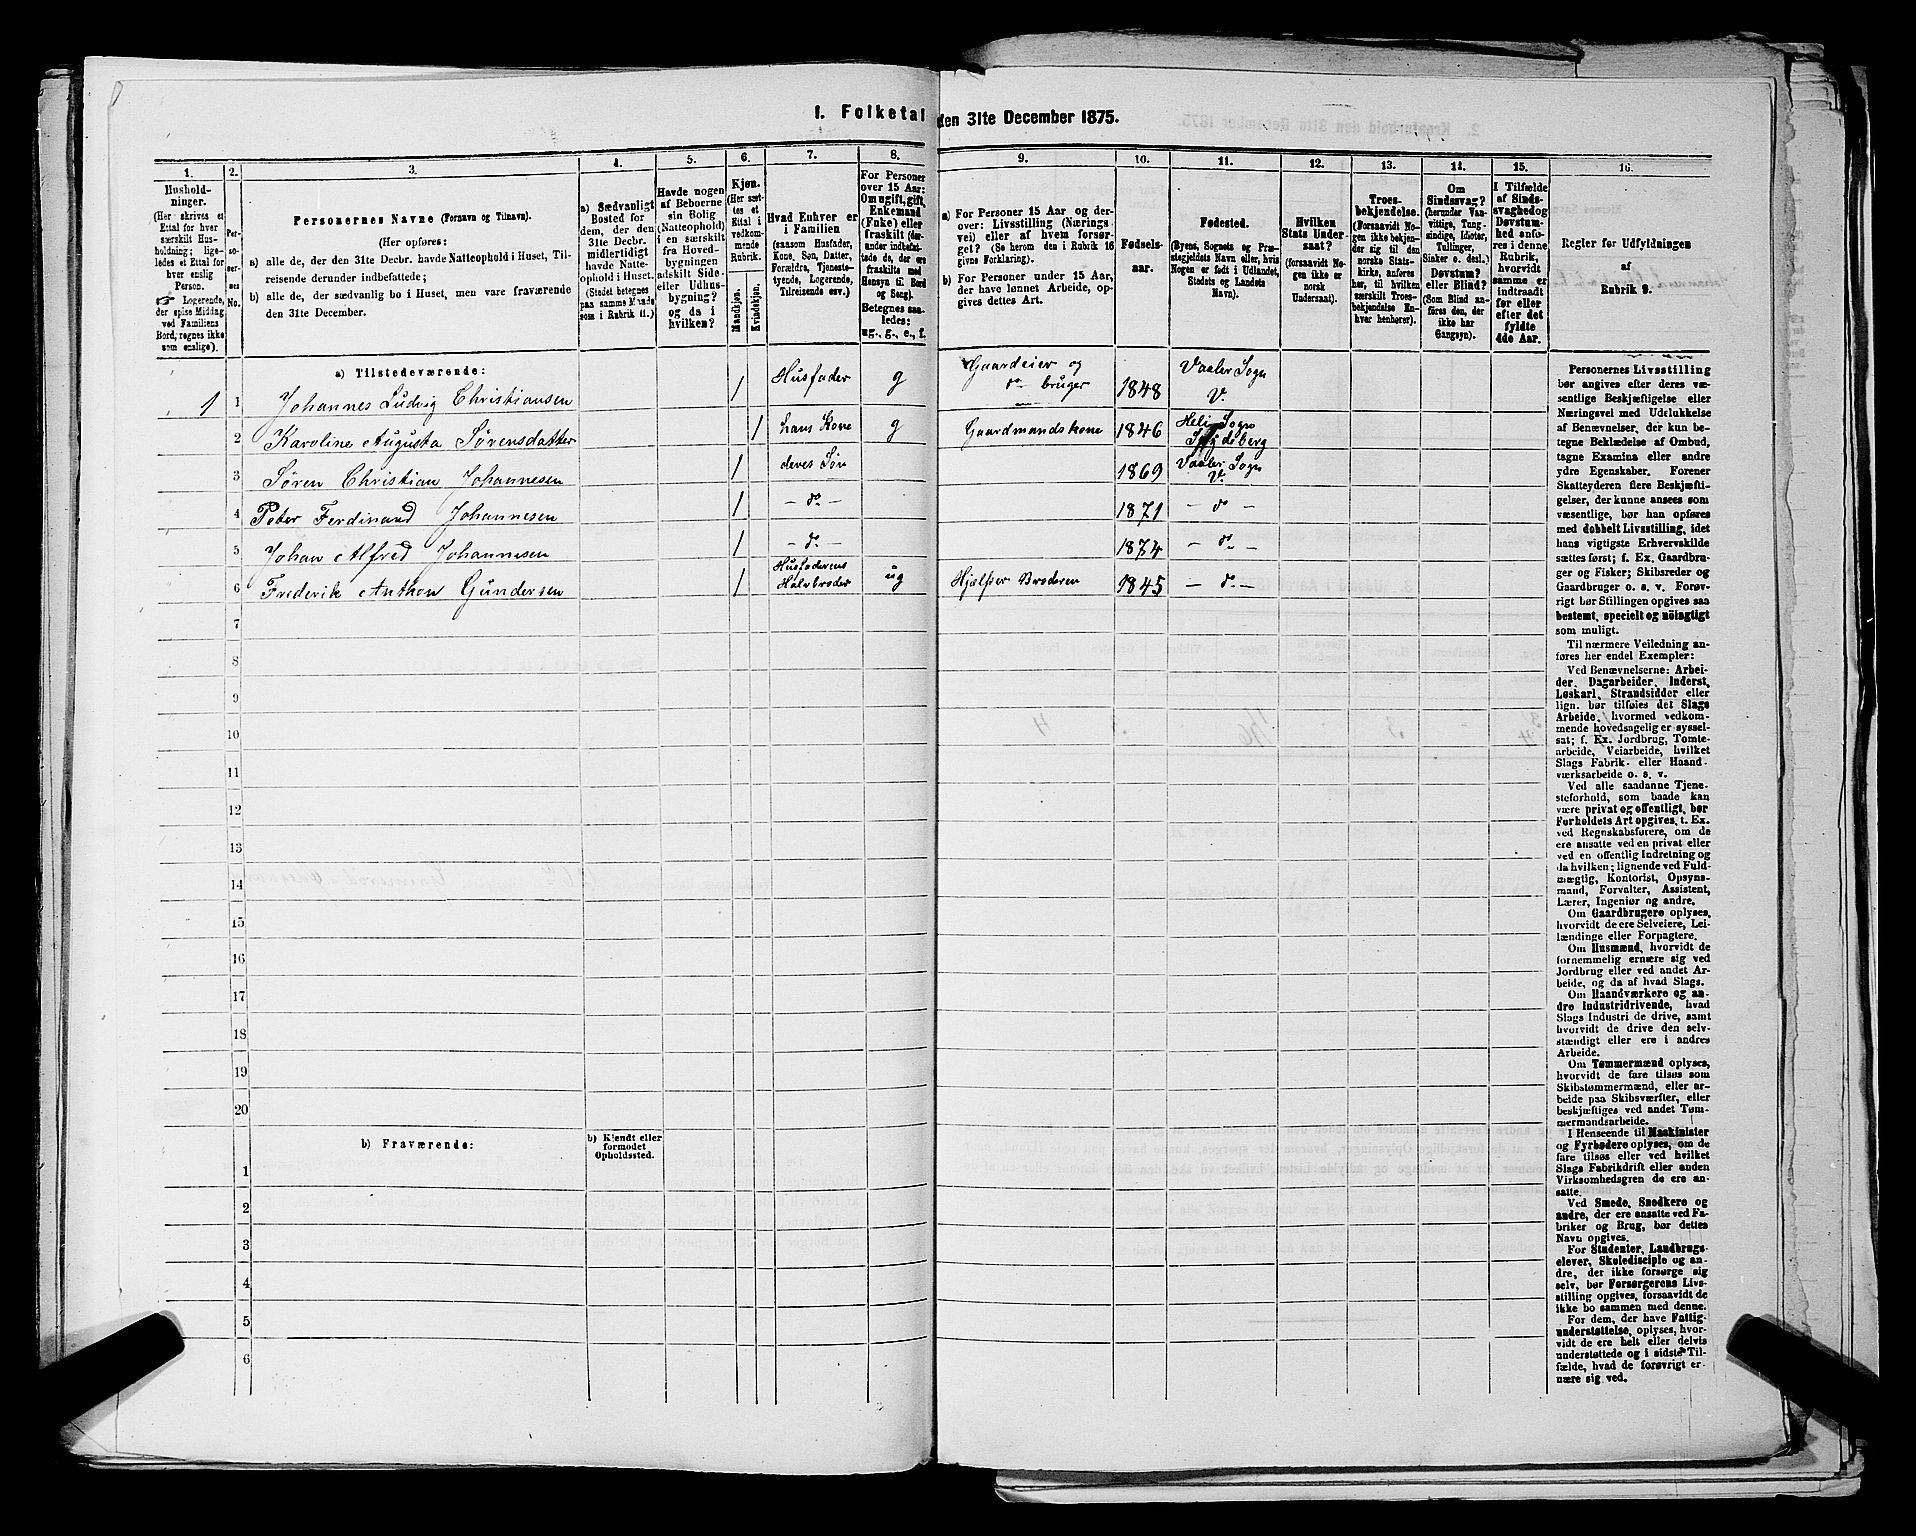 I. Folketal den 31te December 1875.
1.
2.
3.
4.
5.
6.
7.
8.
9.
10.
11.
12.
13.
14.
15.
16.
Hushold-
ninger.
(Her skrives et
Ettal for hver
særskilt Hus-
holdning; lige-
ledes et Ettal for
hver enslig
Person.
Logerende,
der spise Middag
ved Familiens
Bord, regnes ikke
som enslige).
Per-
so-
ner-
nes
No.
Personernes Navne (Fornavn og Tilnavn).
(Her opføres:
a) alle de, der den 31te Decbr. havde Natteophold i Huset, Til-
reisende derunder indbefattede;
b) alle de, der sædvanlig bo i Huset, men vare fraværende
den 31te December.
a) Sædvanligt
Bosted for
dem, der den
31te Decbr.
midlertidigt
havde Natte-
ophold i Huset.
(Stedet betegnes
paa samme Maade
som i Rubrik 11.)
Havde nogen
af Beboerne
sin Bolig
(Natteophold)
i en særskilt
fra Hoved-
bygningen
adskilt Side-
eller Udhus-
bygning?
og da i
hvilken?
Kjøn.
(Her sæt-
tes et
Ettal i
vedkom-
mende
Rubrik.
Mandkjøn.
Kvindekjøn.
Hvad Enhver er
i Familien
(saasom Husfader,
Kone, Søn, Datter,
Forældre, Tjeneste-
tyende, Logerende,
Tilreisende osv.)
For Personer
over 15 Aar:
Om ugift, gift,
Enkemand
(Enke) eller
fraskilt (der-
under indbefat-
tede de, der ere
fraskilte med
Hensyn til Bord
og Seng).
Betegnes saa-
ledes:
ug., g., e., f.
a) For Personer 15 Aar og der-
over: Livsstilling (Nærings-
vei) eller af hvem forsør-
get? (Se herom den i Rubrik 16
givne Forklaring).
b) For Personer under 15 Aar,
der have lønnet Arbeide, op-
gives dettes Art.
Fødsels-
aar.
Fødested.
(Byens, Sognets og Præ-
stegjeldets Navn, eller hvis
Nogen er født i Udlandet,
Stedets og Landets
Navn).
Hvilken
Stats Under-
saat?
(forsaavidt No-
gen ikke er
norsk
Undersaat).
Troes-
bekjendelse.
(Forsaavidt No-
gen ikke bekjen-
der sig til den
norske Stats-
kirke, anføres
her, til hvilken
særskilt Troes-
bekjendelse En-
hver henhører).
Om
Sindssvag?
(herunder Van-
vittige, Tung-
sindige, Idioter,
Tullinger,
Sinker o. desl.)
Døvstum?
eller Blind?
(Som Blind an-
føres den, der
ikke har
Gangsyn).
I Tilfælde
af Sinds-
svaghed og
Døvstum-
hed anfø-
res i denne
Rubrik,
hvorvidt
samme er
indtraadt
før eller
efter det
fyldte
4de Aar.
Regler for Udfyldningen
af
Rubrik 9.
a) Tilstedeværende:
1 1 Johannes Ludvig Christiansen 1 Husfader g Gaardeier og do bruger 1848 Vaaler Sogn V.
2 Karoline Augusta Sørensdatter 1 hans Kone g Gaardmandskone 1846 Heli Sogn Spydeberg
3 Søren Christian Johannesen 1 deres Søn 1869 Vaaler Sogn V.
4 Peter Ferdinand Johannesen 1 - do - 1871 - do -
5 Johan Alfred Johannesen 1 - do - 1874 - do -
6 Frederik Anthon Gundersen 1 Husfaderens Halvbroder ug Hjælper Broderen 1845 - do -
7
8
9
10
11
12
13
14
15
16
17
18
19
20
b) Fraværende:
b) Kjendt eller
formodet
Opholdssted.
1
2
3
4
5
6
Personernes Livsstilling
bør angives efter deres væ-
sentlige Beskjæftigelse eller
Næringsvei med Udelukkelse
af Benævnelser, der kun be-
tegne Beklædelse af Ombud,
tagne Examina eller andre
ydre Egenskaber. Forener
Skatteyderen flere Beskjæfti-
gelser, der kunne ansees som
væsentlige, bør han opføres
med dobbelt Livsstilling, idet
hans vigtigste Erhvervskilde
sættes først; f. Ex. Gaardbru-
ger og Fisker; Skibsreder og
Gaardbruger o. s. v. Forøv-
rigt bør Stillingen opgives saa
bestemt, specielt og nöiagtigt
som muligt.
Til nærmere Veiledning an-
føres her endel Exempler:
Ved Benævnelserne: Arbei-
der, Dagarbeider, Inderst,
Løskarl, Strandsidder eller
lign. bør tilføies det Slags
Arbeide, hvormed vedkom-
mende hovedsagelig er syssel-
sat; f. Ex. Jordbrug, Tomte-
arbeide, Veiarbeide, hvilket
Slags Fabrik- eller Haand-
værksarbeide o. s. v.
Ved alle saadanne Tjene-
steforhold, som baade kan
være privat og offentligt, bør
Forholdets Art opgives, t. Ex.
ved Regnskabsførere, om de
ere ansatte ved en privat eller
ved en offentlig Indretning og
da hvilken; lignende ved Fuld-
mægtig, Kontorist, Opsyns-
mand, Forvalter, Assistent,
Lærer, Ingeniør og andre.
Om Gaardbrugere oplyses,
hvorvidt de ere Selveiere, Lei-
lændinge eller Forpagtere.
Om Husmænd, hvorvidt de
fornemmelig ernære sig ved
Jordbrug eller ved andet Ar-
beide, og da af hvad Slags.
Om Haandværkere og an-
dre Industridrivende, hvad
Slags Industri de drive, samt
hvorvidt de drive den selv-
stændigt eller ere i andres
Arbeide.
Om Tømmermænd oplyses,
hvorvidt de fare tilsøs som
Skibstømmermænd, eller ar-
beide paa Skibsværfter, eller
beskjæftiges ved andet Tøm-
mermandsarbeide.
I Henseende til Maskinister
og Fyrbødere oplyses, om de
fare tilsøs eller ved hvilket
Slags Fabrikdrift eller anden
Virksomhedsgren de ere an-
satte.
Ved Smede, Snedkere og
andre, der ere ansatte ved Fa-
briker og Brug, bør dettes
Navn opgives.
For Studenter, Landbrugs-
elever, Skoledisciple og an-
dre, der ikke forsørge sig
selv, bør Forsørgerens Livs-
stilling opgives, forsaavidt de
ikke bo sammen med denne.
For dem, der have Fattig-
understøttelse, oplyses, hvor-
vidt de ere helt eller delvis
understøttede og i sidste Til-
fælde, hvad de forøvrigt er-
nære sig ved.